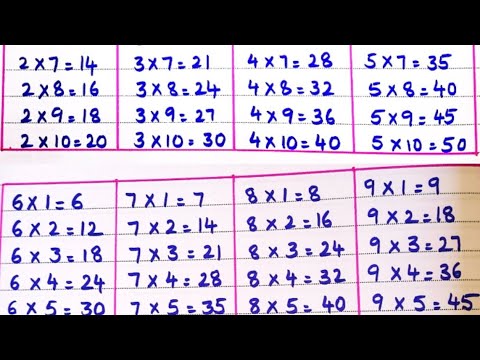 2 × 7 = 14 3 × 7 = 21 4 × 7 = 28 5 × 7 = 35
2 × 8 = 16 3 × 8 = 24 4 × 8 = 32 5 × 8 = 40
2 × 9 = 18 3 × 9 = 27 4 × 9 = 36 5 × 9 = 45
2 × 10 = 20 3 × 10 = 30 4 × 10 = 40 5 × 10 = 50
6 × 1 = 6 7 × 1 = 7 8 × 1 = 8 9 × 1 = 9
6 × 2 = 12 7 × 2 = 14 8 × 2 = 16 9 × 2 = 18
6 × 3 = 18 7 × 3 = 21 8 × 3 = 24 9 × 3 = 27
6 × 4 = 24 7 × 4 = 28 8 × 4 = 32 9 × 4 = 36
6 × 5 = 30 7 × 5 = 35 8 × 5 = 40 9 × 5 = 45